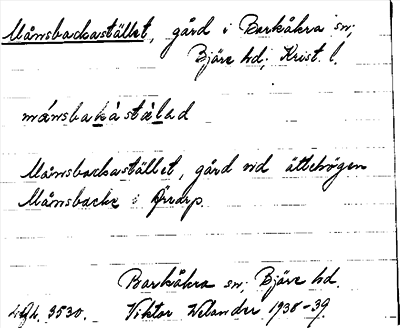 Månsbackastället, gård i Barkåkra sn;
Bjäre hd; Krist. l.
månsbakàstàlad
Månsbackastället, gård vid ättehögen
Månsbacke i Ørrarp.
Barkåkra sn; Bjäre hd.
3530. Viktor Welander 1938-39